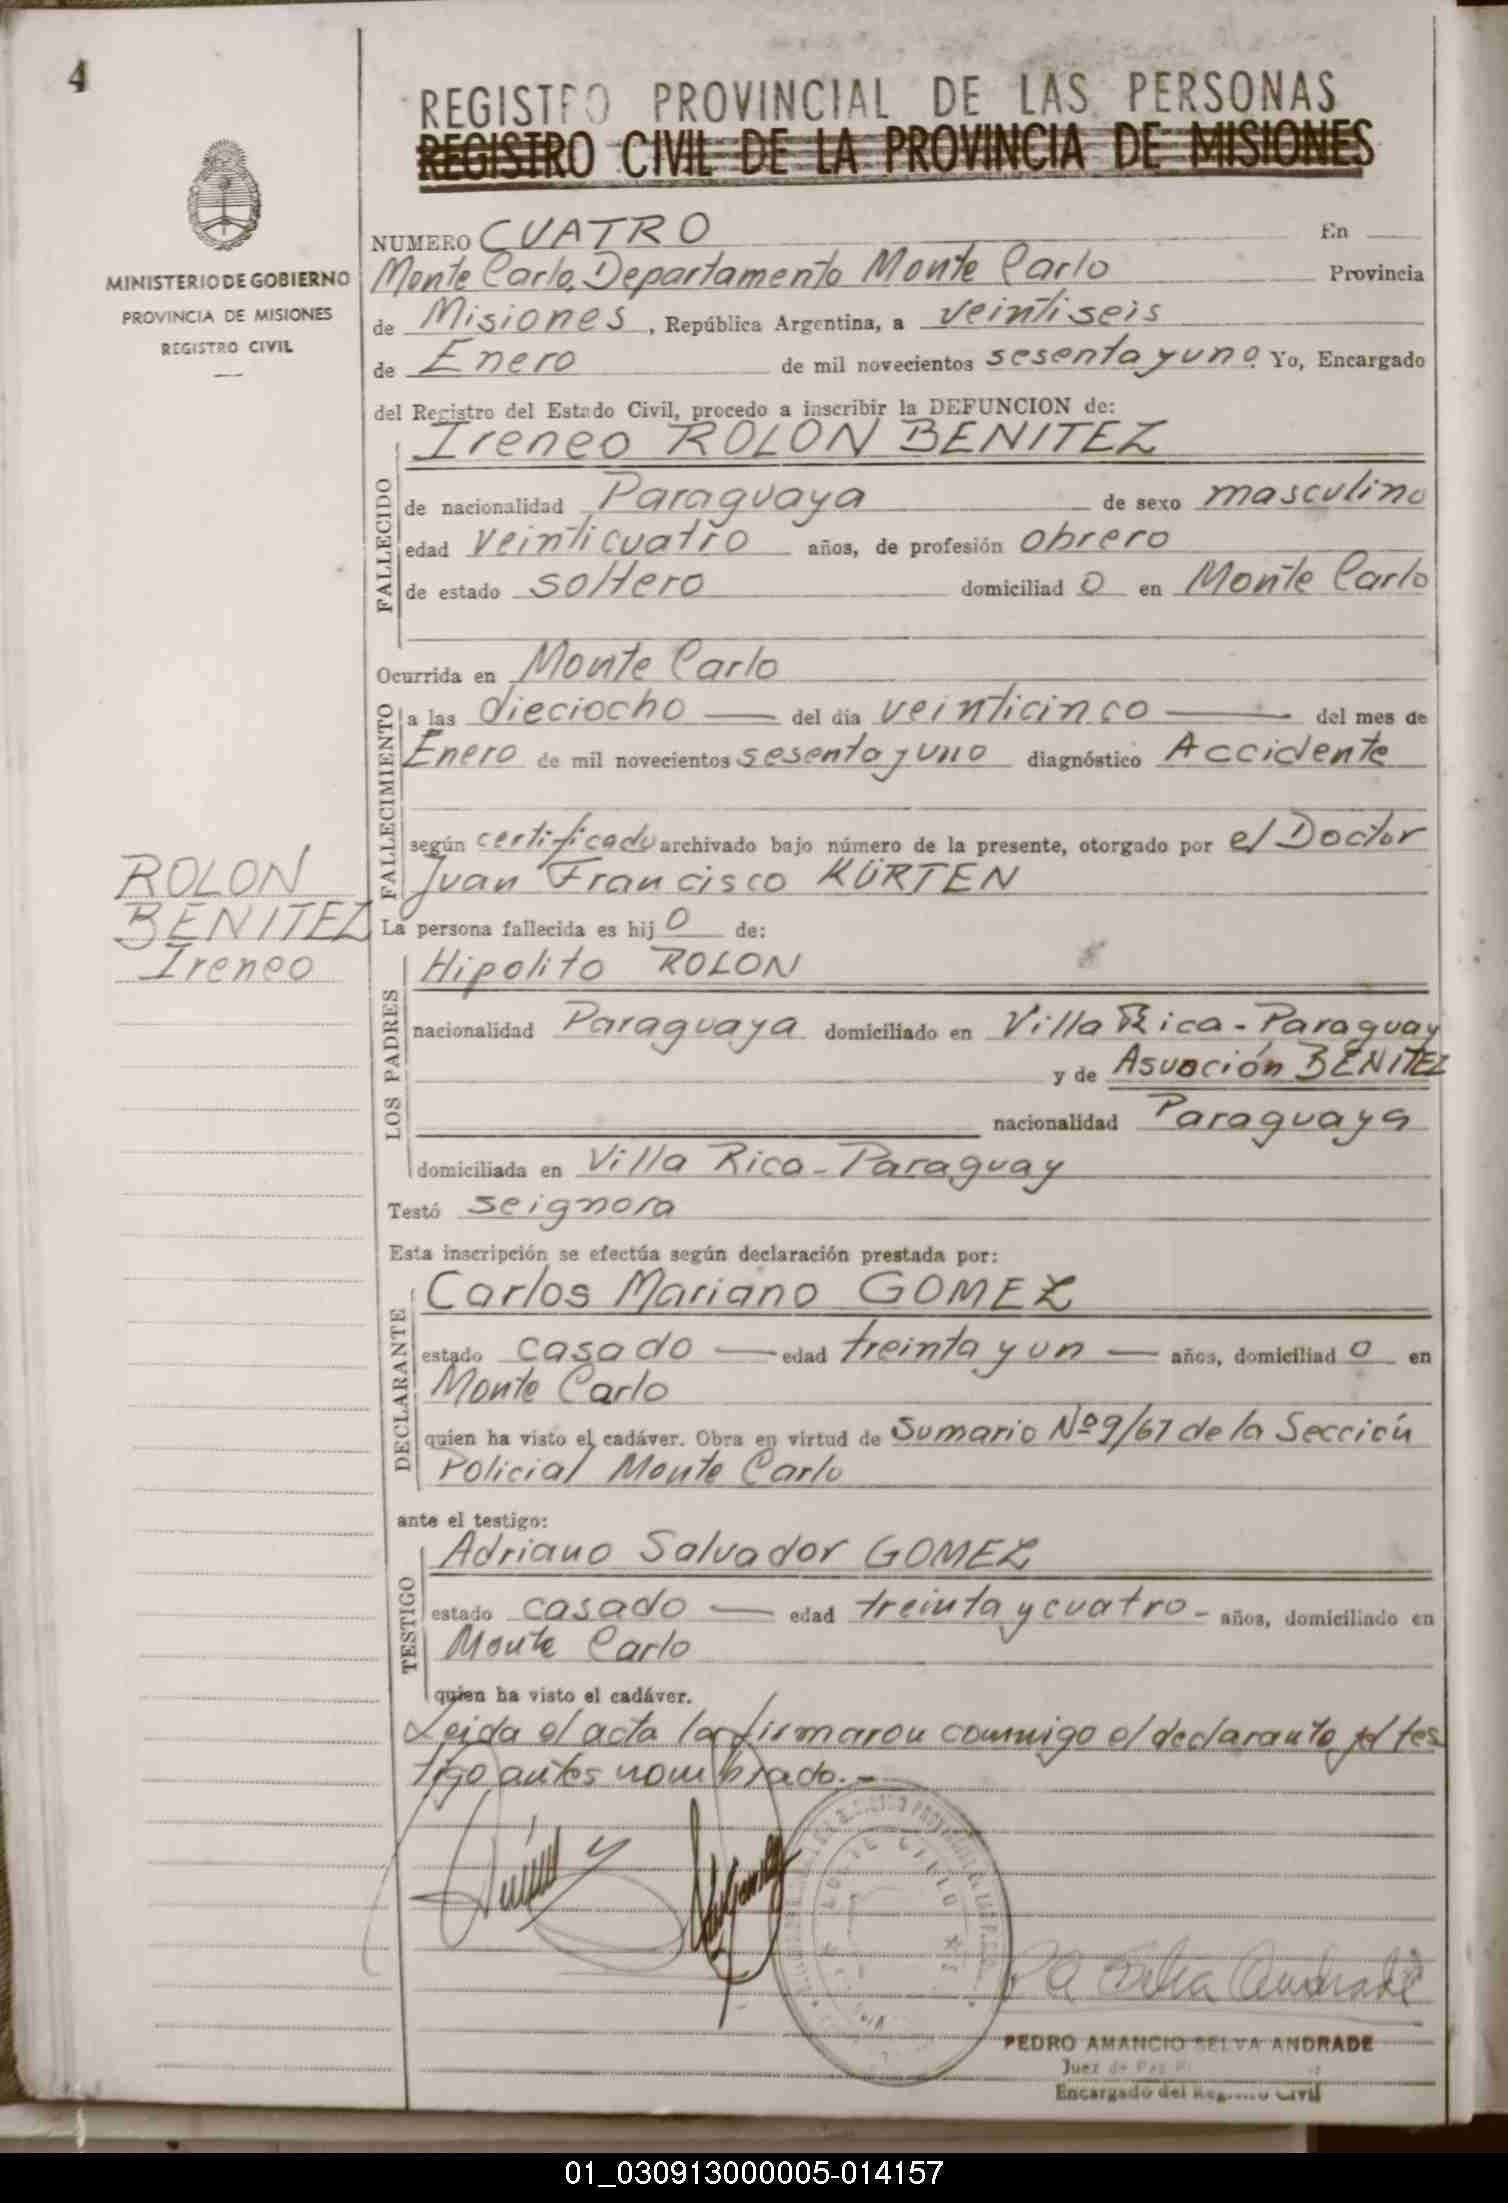 4
REGISTRO PROVINCIAL DE LAS PERSONAS
REGISTRO CIVIL DE LA PROVINCIA DE MISIONES
MINISTERIO DE GOBIERNO
PROVINCIA DE MISIONES
REGISTRO CIVIL
NUMERO CUATRO En
Monte Carlo, Departamento Monte Carlo Provincia
de Misiones, República Argentina, a veintiseis
de Enero de mil novecientos sesenta y uno Yo, Encargado
del Registro del Estado Civil, procedo a inscribir la DEFUNCION de:
Ireneo ROLON BENITEZ
FALLECIDO
de nacionalidad Paraguaya de sexo masculino
edad veinticuatro años, de profesión obrero
de estado soltero domiciliad o en Monte Carlo
Ocurrida en Monte Carlo
FALLECIMIENTO
a las dieciocho — del día veinticinco — del mes de
Enero de mil novecientos sesenta y uno diagnóstico Accidente
según certificado archivado bajo número de la presente, otorgado por el Doctor
Juan Francisco KÜRTEN
ROLON
BENITEZ
Ireneo
La persona fallecida es hij o de:
LOS PADRES
Hipolito ROLON
nacionalidad Paraguaya domiciliado en Villa Rica - Paraguay
y de Asunción BENITEZ
nacionalidad Paraguaya
domiciliada en Villa Rica - Paraguay
Testó se ignora
Esta inscripción se efectúa según declaración prestada por:
DECLARANTE
Carlos Mariano GOMEZ
estado casado — edad treinta y un — años, domiciliad o en
Monte Carlo
quien ha visto el cadáver. Obra en virtud de Sumario Nº 9/61 de la Sección
Policial Monte Carlo
ante el testigo:
TESTIGO
Adriano Salvador GOMEZ
estado casado — edad treinta y cuatro - años, domiciliado en
Monte Carlo
quien ha visto el cadáver.
Leida el acta la firmaron conmigo el declarante y el tes
tigo antes nombrado.-
PEDRO AMANCIO SELVA ANDRADE
Juez de Paz
Encargado del Registro Civil
01_030913000005-014157